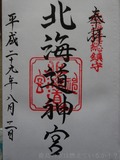 奉拝
北海道神宮
平成二十九年八月二日